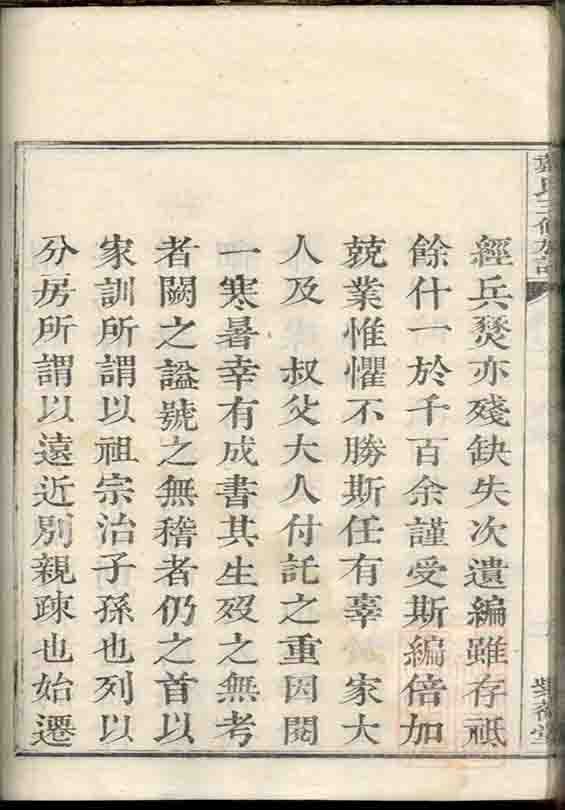 經兵燹亦殘缺失次遺編雖存祗
餘什一於千百余謹受斯編倍加
兢業惟懼不勝斯任有辜　家大
人及　叔父大人付託之重因閱
一寒暑幸有成書其生歿之無考
者闕之謚號之無稽者仍之首以
家訓所謂以祖宗治子孫也列以
分房所謂以遠近別親疎也始遷